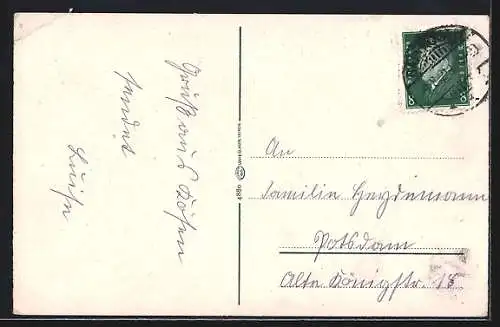 Gruß aus Kösen
sendet
Luise
4886
An
Familie Heydemann
Potsdam
Alte Königstr. 15
8 8